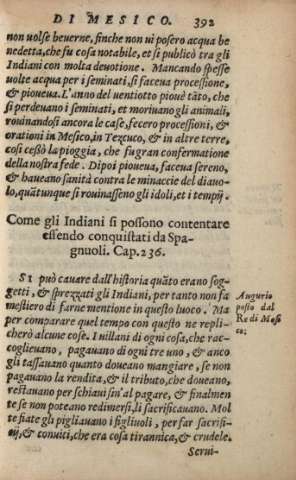 DI MESICO. 392
non uolse beuerne, finche non ui posero acqua be
nedetta, che fu cosa notabile, et si publicò tra gli
Indiani con molta deuotione. Mancando spesse
uolte acqua per i seminati, si faceua processione,
& pioueua. L'anno del uentiotto piouè tãto, che
si perdeuano i seminati, et moriuano gli animali,
rouinandosi ancora le case, fecero processioni, &
orationi in Mesico, in Tezcuco, & in altre terre,
cosi cessò la pioggia, che fu gran confermatione
della nostra fede. Dipoi pioueua, faceua sereno,
& haueano sanità contra le minaccie del diauo-
lo, quãtunque si rouinasseno gli idoli, et i tempij.
Come gli Indiani si possono contentare
essendo conquistati da Spa-
gnuoli. Cap. 236.
SI può cauare dall'historia quãto erano sog-
getti, & sprezzati gli Indiani, per tanto non fa
mestiero di farne mentione in questo luoco. Ma
per comparare quel tempo con questo ne repli-
cherò alcune cose. I uillani di ogni cosa, che rac-
coglieuano, pagauano di ogni tre uno, & anco
gli tassauano quanto doueano mangiare, se non
pagauano la rendita, & il tributo, che doueano,
restauano per schiaui sin'al pagare, & finalmen
te se non poteano redimersi, li sacrificauano. Mol
te fiate gli pigliauano i figliuoli, per far sacrifi-
cij, & conuiti, che era cosa tirannica, & crudele.
Serui-
Augurio
posto dal
Re di Mesi
co: